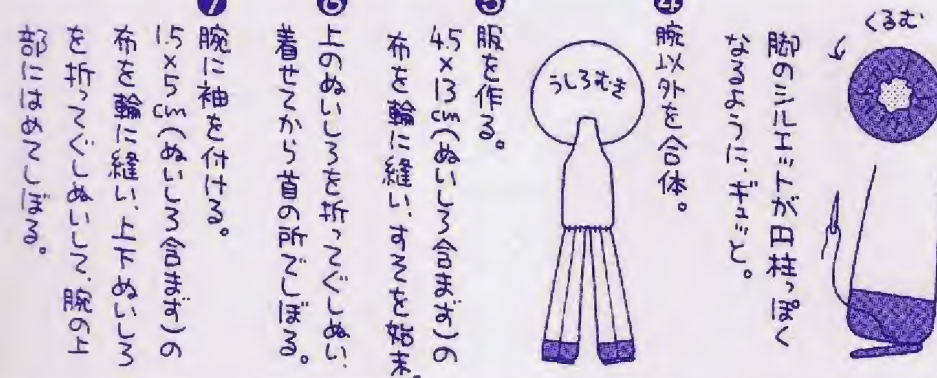 くるむ
脚のシルエットが円柱っぽく
なるように、ギュッと。
❹
腕以外を合体。
うしろむき
❺
服を作る。
4.5×13cm(ぬいしろ含まず)の
布を輪に縫い、すそを始末。
❻
上のぬいしろを折ってぐしぬい、
着せてから首の所でしぼる。
❼
腕に袖を付ける。
1.5×5cm(ぬいしろ含まず)の
布を輪に縫い、上下ぬいしろ
を折ってぐしぬいして、腕の上
部にはめてしぼる。